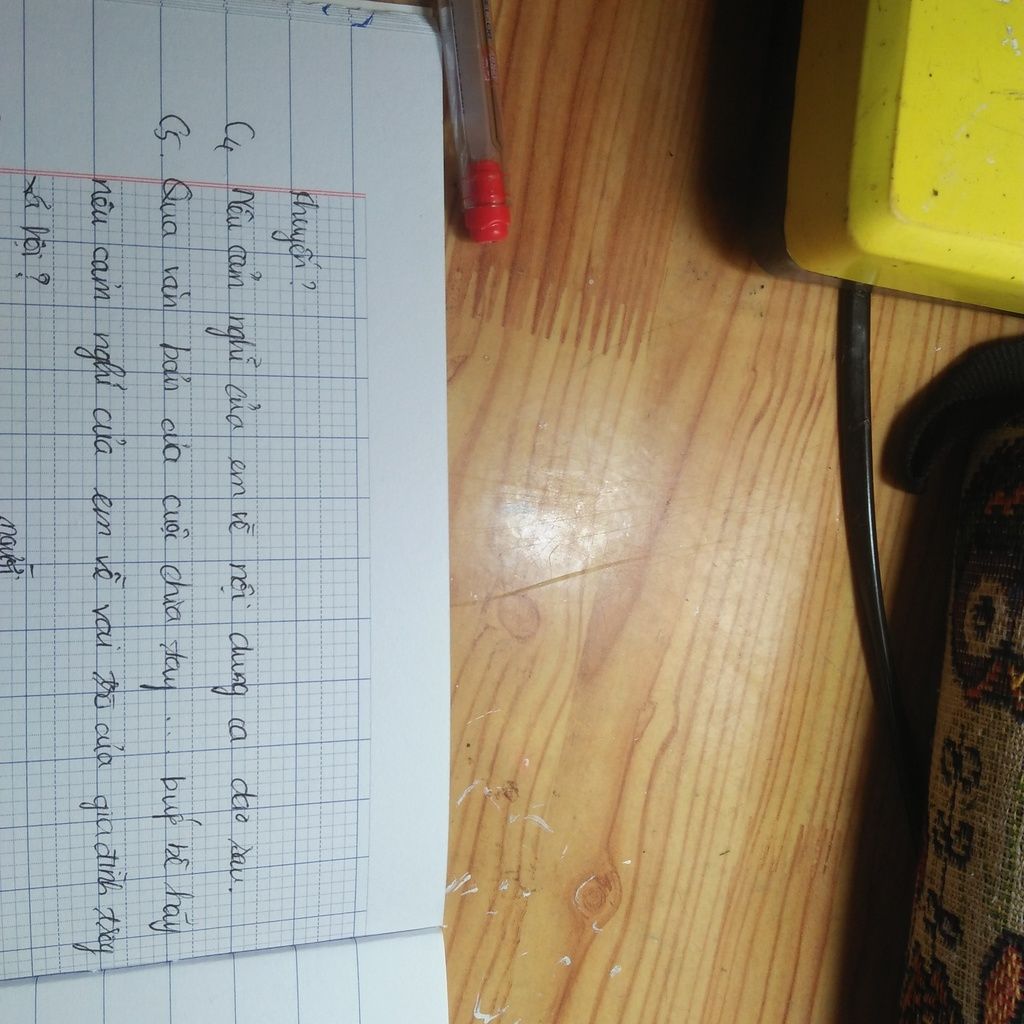 chuyến?
C4 Nêu cảm nghĩ của em về nội dung ca dao sau.
C5. Qua văn bản của cuộc chia tay ... búp bê hãy
nêu cảm nghĩ của em về vai trò của gia đình trong
xã hội?
người